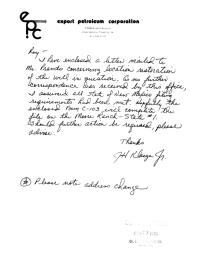 epc export petroleum corporation
Roy -
I have enclosed a letter mailed to
Mr. concerning location restoration
of the well in question. As no further
correspondence was received by this office,
I assumed all State of New Mexico
requirements had been met. Hopefully the
enclosed Form C-103 will complete the
file on the Moore Ranch - State #1.
Should further action be required, please
advise.
Thanks
Jr.
* Please note address change